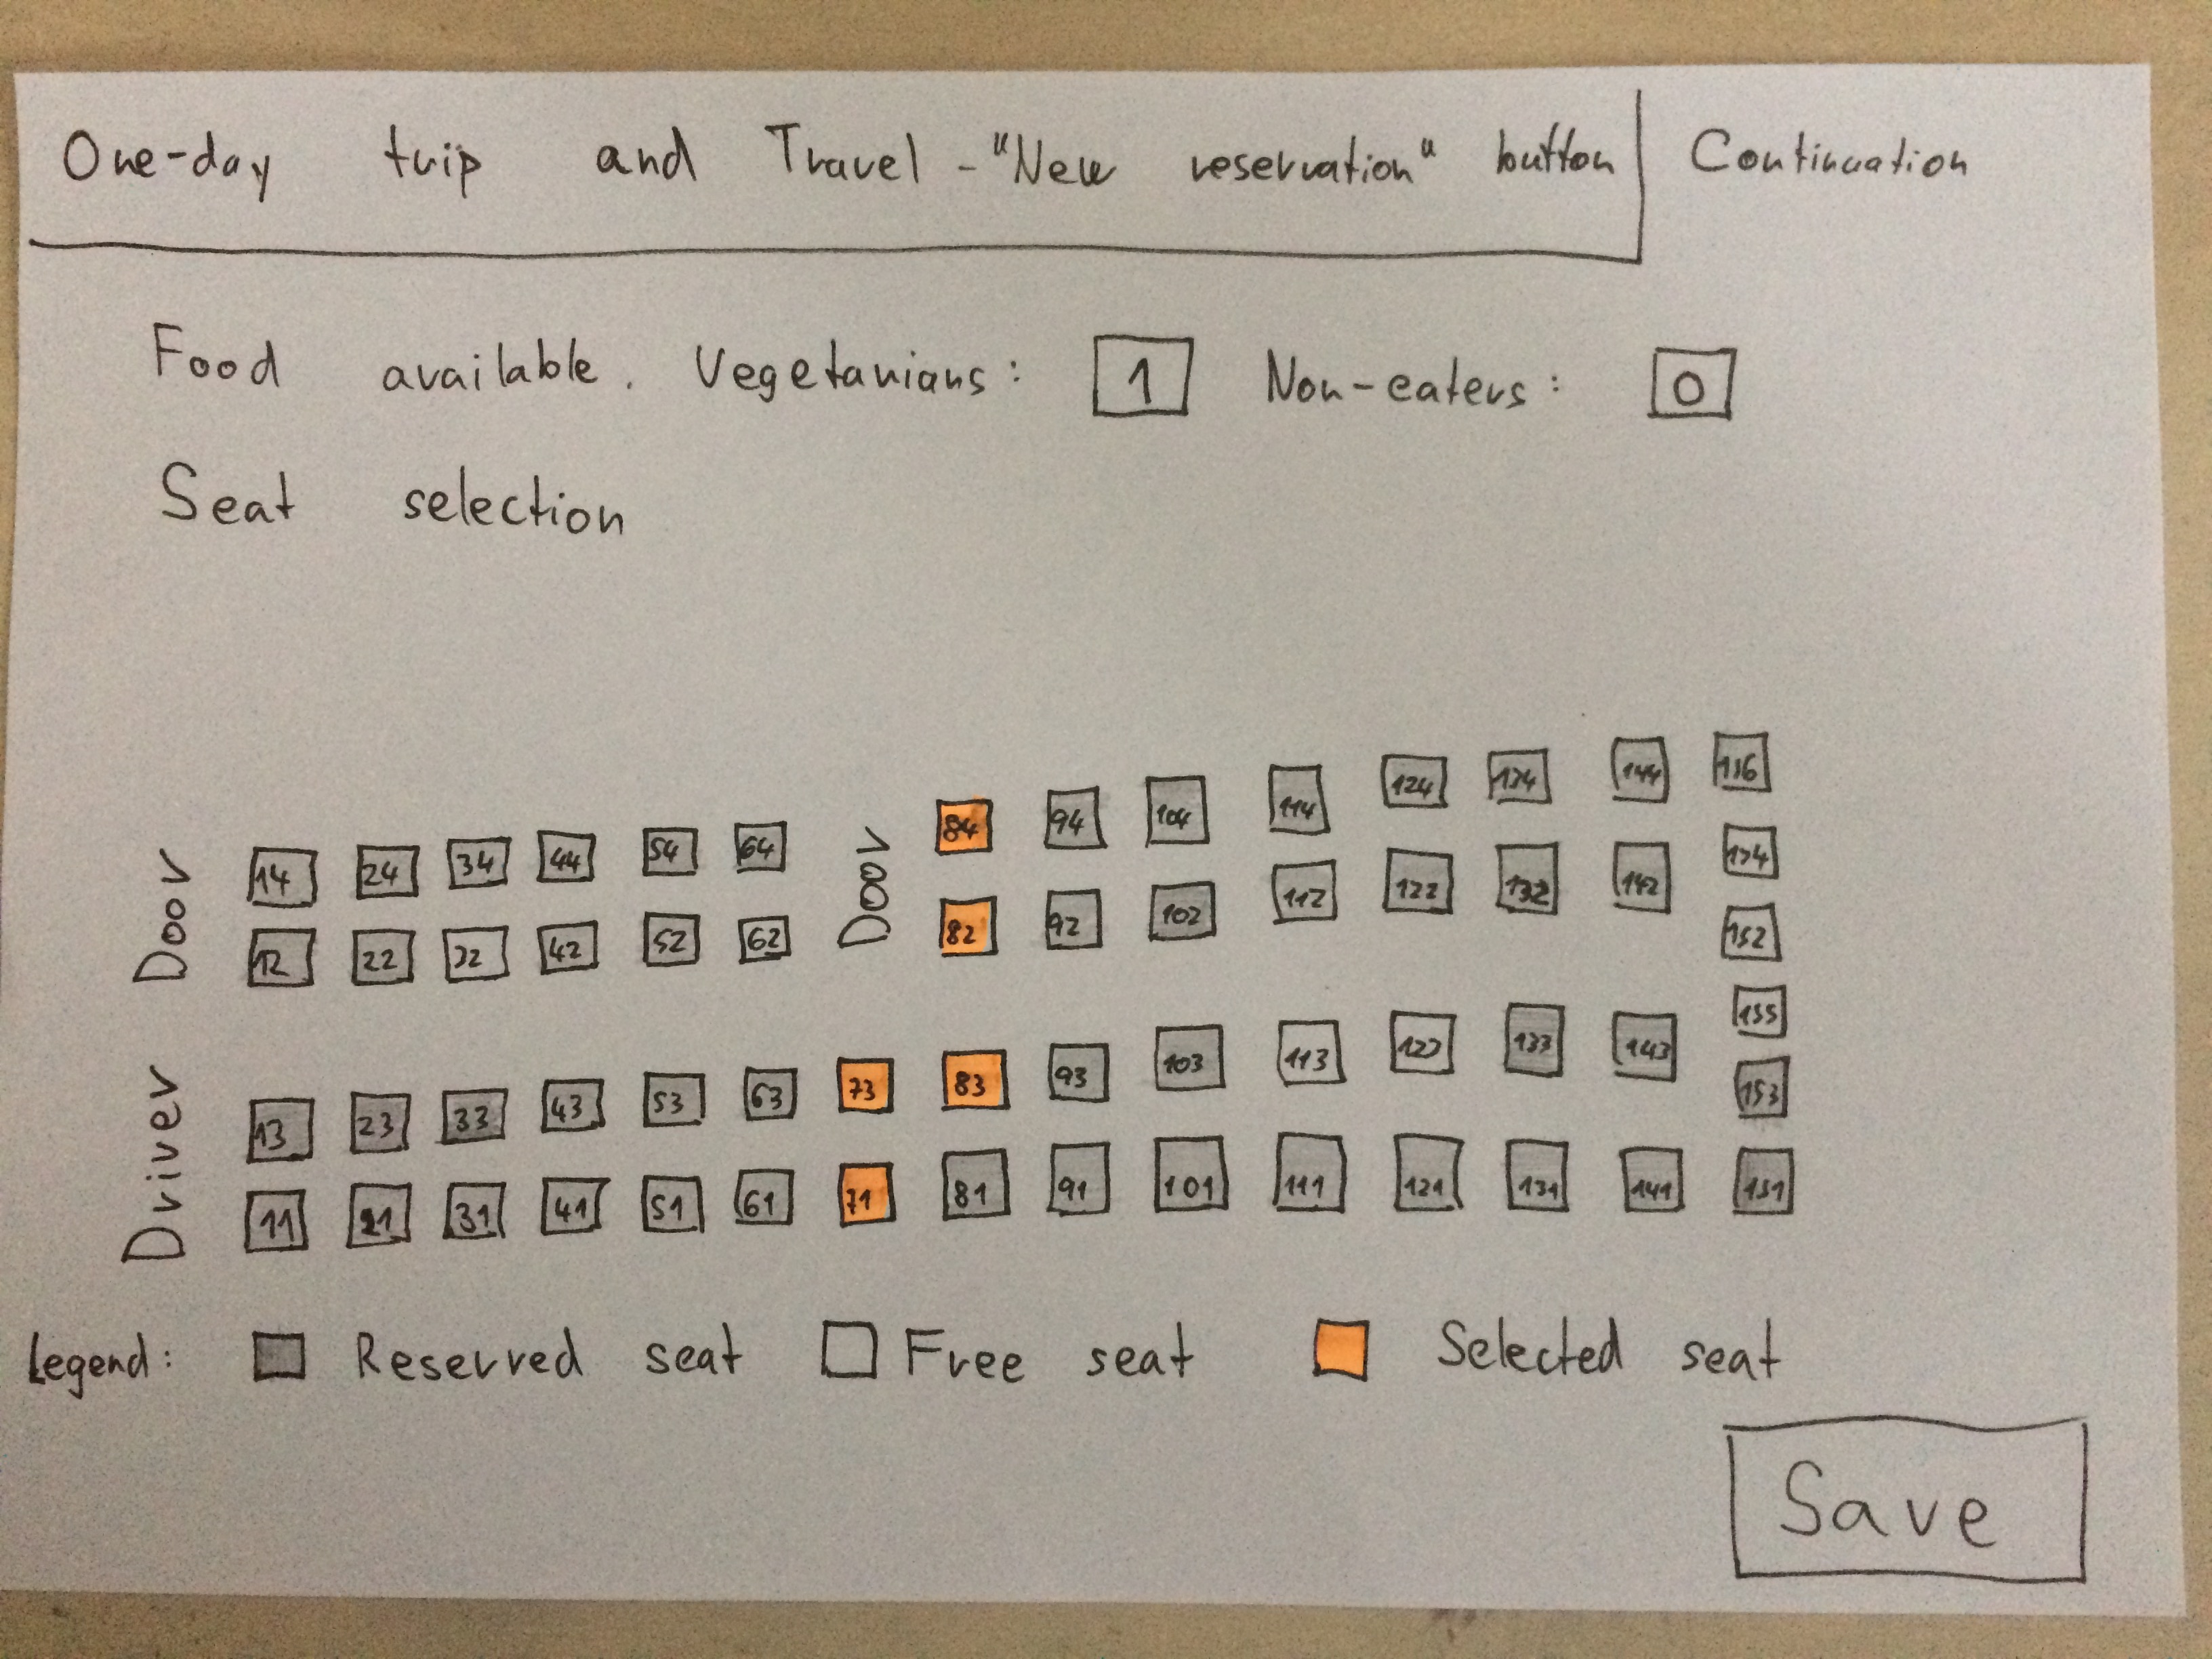 One-day trip and Travel - "New reservation" button Continuation
Food available. Vegetarians: 1 Non-eaters: 0
Seat selection
Door 14 24 34 44 54 64 Door 84 94 104 114 124 134 144 156
154
12 22 32 42 52 62 82 92 102 112 122 132 142 152
155
Driver 13 23 33 43 53 63 73 83 93 103 113 123 133 143 153
11 21 31 41 51 61 71 81 91 101 111 121 131 141 151
Legend: Reserved seat Free seat Selected seat
Save